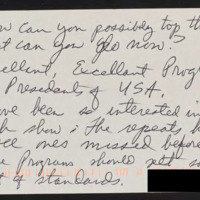 ow can you possibly top th
at can you do now?
ellent, Excellent Prog
Presidents of USA.
ave been so interested in
h show & the repeats,
ce ones missed before
e Programs should set so
of standards.